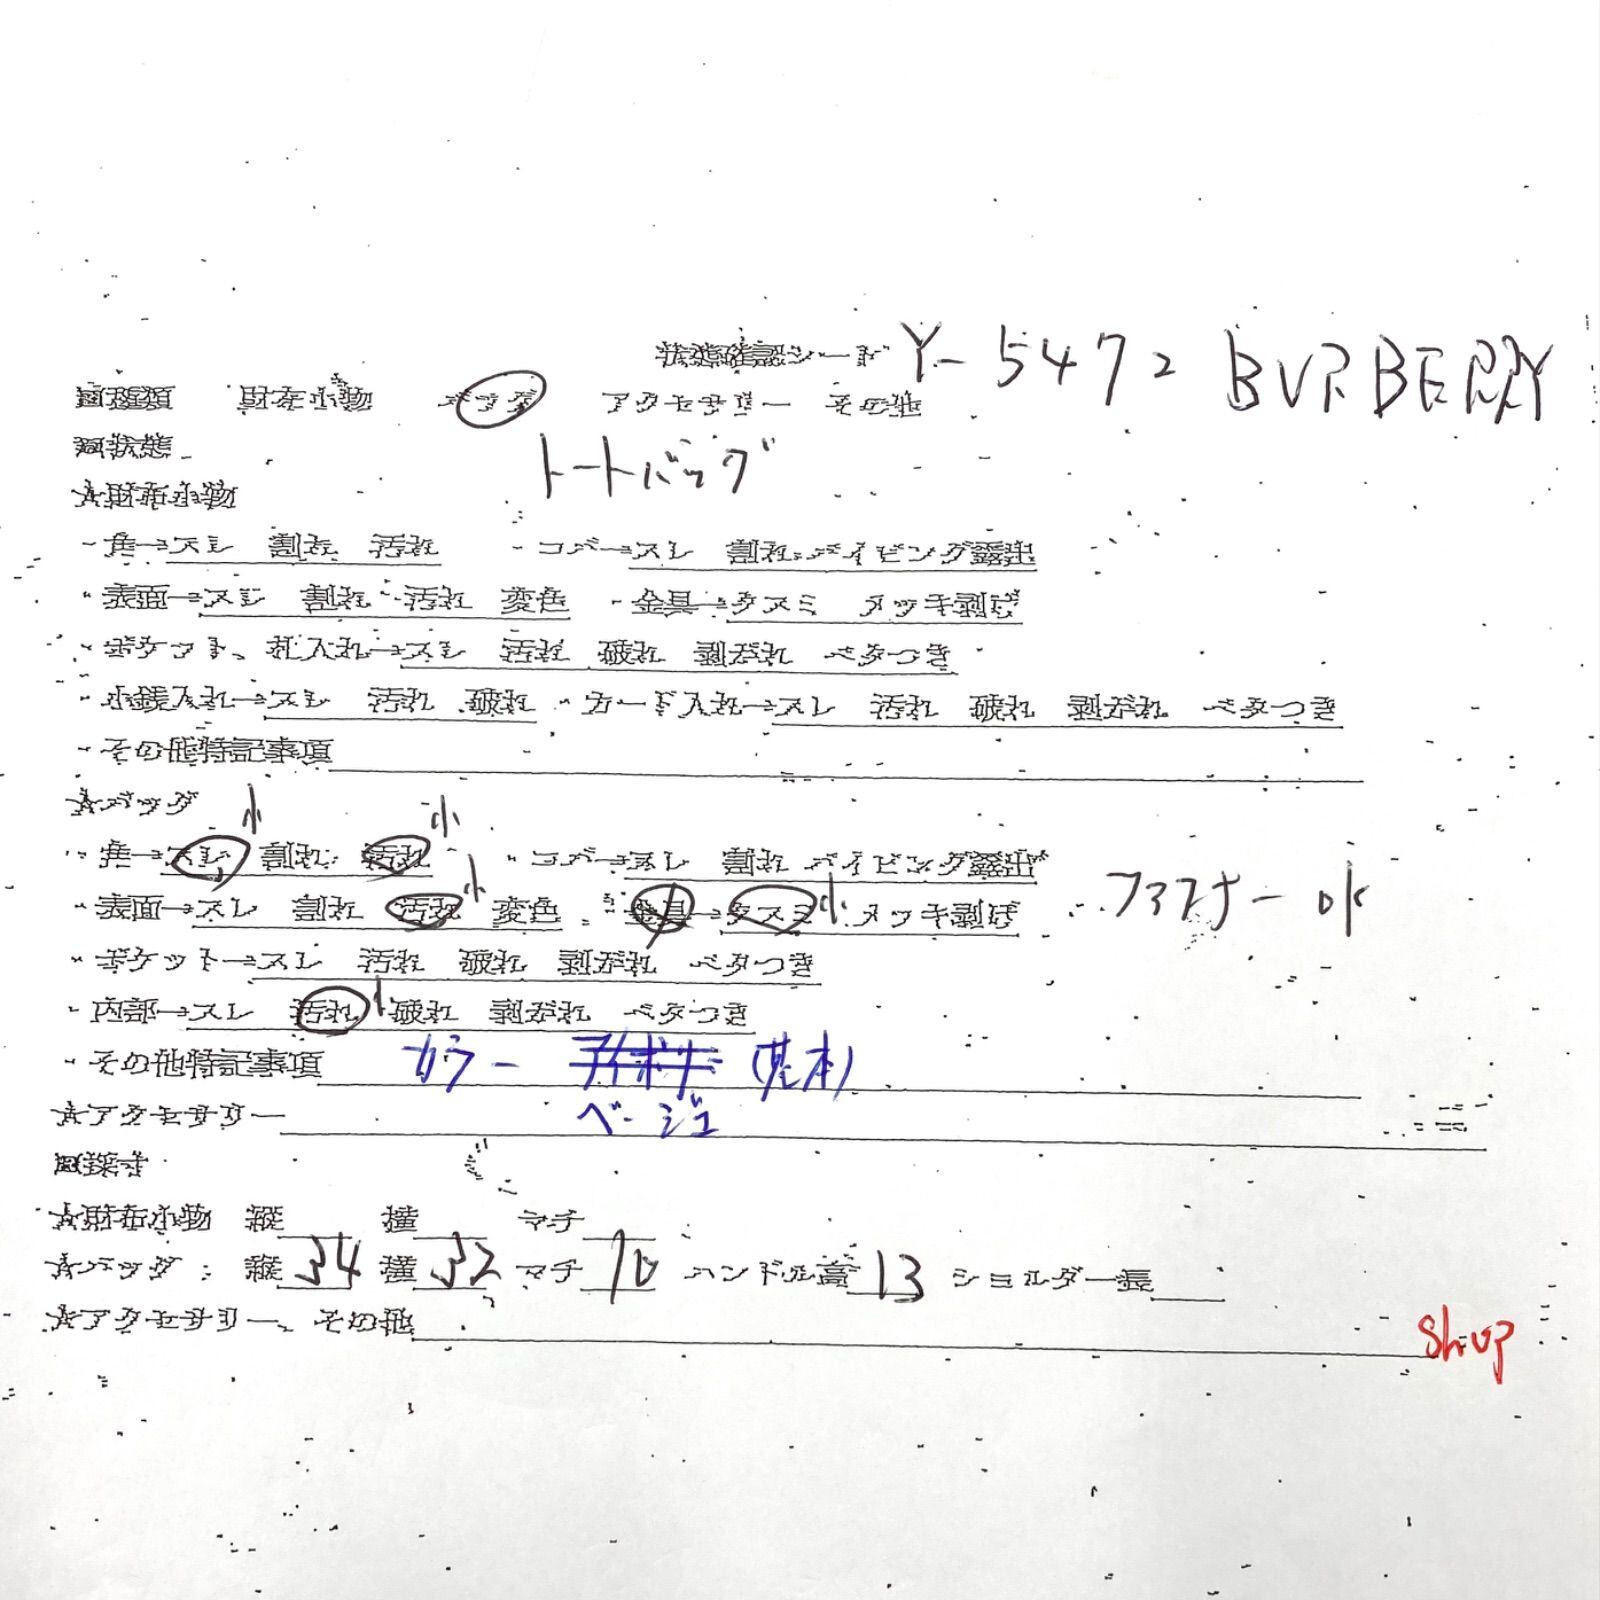 状態確認シート Y-5472 BURBERRY
□種類 財布小物 バッグ アクセサリー その他
□状態
トートバッグ
☆財布小物
・角→スレ 割れ 汚れ ・コバ→スレ 割れ パイピング露出
・表面→スレ 割れ 汚れ 変色 ・金具→クスミ メッキ剥げ
・ポケット、札入れ→スレ 汚れ 破れ 剥がれ ベタつき
・小銭入れ→スレ 汚れ 破れ ・カード入れ→スレ 汚れ 破れ 剥がれ ベタつき
・その他特記事項
☆バッグ
小 小
・角→スレ 割れ 汚れ ・コバ→スレ 割れ パイピング露出
・表面→スレ 割れ 汚れ小 変色 ・金具→クスミ小 メッキ剥げ ファスナーok
・ポケット→スレ 汚れ 破れ 剥がれ ベタつき
・内部→スレ 汚れ小 破れ 剥がれ ベタつき
・その他特記事項 カラー アイボリー (基本)
☆アクセサリー ベージュ
□採寸
☆財布小物 縦 横 マチ
☆バッグ : 縦 34 横 32 マチ 10 ハンドル高 13 ショルダー長
☆アクセサリー、その他
shop